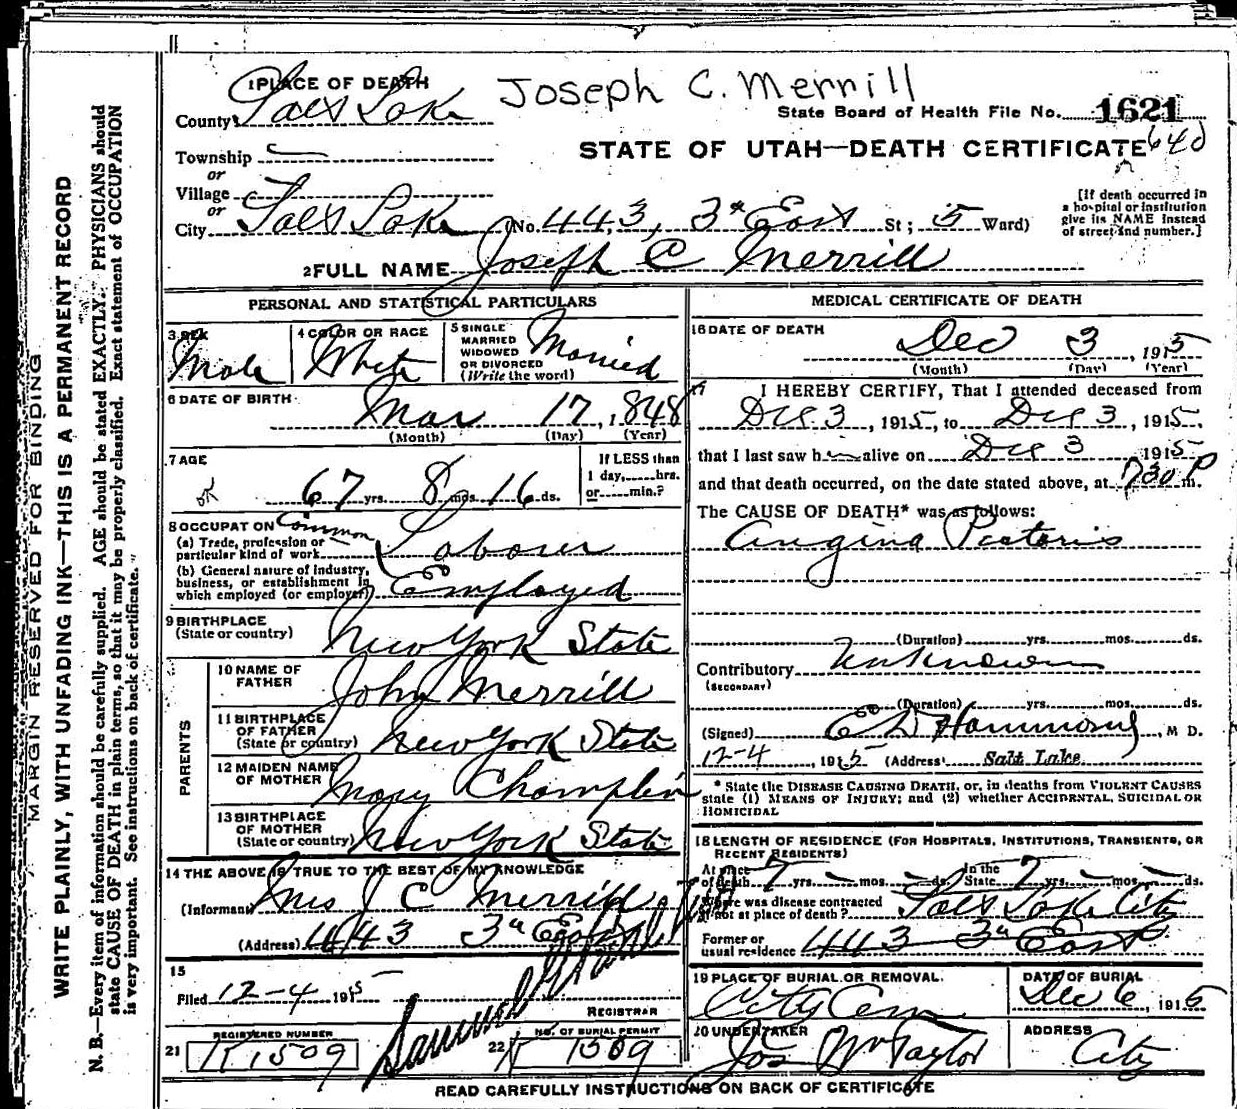 Joseph C. Merrill
1 PLACE OF DEATH
County Salt Lake
State Board of Health File No. 1621
Township
STATE OF UTAH—DEATH CERTIFICATE 640
or
Village
or
City Salt Lake (No. 443, 3d East St; 5 Ward)
[If death occurred in
a hospital or institution
give its NAME instead
of street and number.]
2 FULL NAME Joseph C Merrill
PERSONAL AND STATISTICAL PARTICULARS
3 SEX Male
4 COLOR OR RACE White
5 SINGLE
MARRIED
WIDOWED
OR DIVORCED
(Write the word) Married
6 DATE OF BIRTH
Mar 17, 1848
(Month) (Day) (Year)
7 AGE
OK 67 yrs. 8 mos. 16 ds.
If LESS than
1 day, hrs.
or min.?
8 OCCUPATION
(a) Trade, profession or
particular kind of work Common Laborer
(b) General nature of industry,
business, or establishment in
which employed (or employer) Employed
9 BIRTHPLACE
(State or country) New York State
PARENTS
10 NAME OF
FATHER John Merrill
11 BIRTHPLACE
OF FATHER
(State or country) New York State
12 MAIDEN NAME
OF MOTHER Mary Champlin
13 BIRTHPLACE
OF MOTHER
(State or country) New York State
14 THE ABOVE IS TRUE TO THE BEST OF MY KNOWLEDGE
(Informant) Mrs J C Merrill
(Address) 443 3d East
15
Filed 12-4 1915
REGISTRAR
21 REGISTERED NUMBER
K 1509
22 NO. OF BURIAL PERMIT
K 1509
MEDICAL CERTIFICATE OF DEATH
16 DATE OF DEATH
Dec 3, 1915
(Month) (Day) (Year)
17 I HEREBY CERTIFY, That I attended deceased from
Dec 3, 1915, to Dec 3, 1915,
that I last saw him alive on Dec 3 1915
and that death occurred, on the date stated above, at 730 P m.
The CAUSE OF DEATH* was as follows:
Angina Pectoris
(Duration) yrs. mos. ds.
Contributory Unknown
(SECONDARY)
(Duration) yrs. mos. ds.
(Signed) E D Hammond, M D.
12-4, 1915 (Address) Salt Lake
* State the DISEASE CAUSING DEATH, or, in deaths from VIOLENT CAUSES
state (1) MEANS OF INJURY; and (2) whether ACCIDENTAL, SUICIDAL OR
HOMICIDAL
18 LENGTH OF RESIDENCE (FOR HOSPITALS, INSTITUTIONS, TRANSIENTS, OR
RECENT RESIDENTS)
At place
of death 7 yrs. – mos. – ds. In the
State 7 yrs. – mos. – ds.
Where was disease contracted
if not at place of death? Salt Lake City
Former or
usual residence 443 3d East
19 PLACE OF BURIAL OR REMOVAL
City Cem
DATE OF BURIAL
Dec 6, 1915
20 UNDERTAKER
Jos Wm Taylor
ADDRESS
City
READ CAREFULLY INSTRUCTIONS ON BACK OF CERTIFICATE
MARGIN RESERVED FOR BINDING
WRITE PLAINLY, WITH UNFADING INK—THIS IS A PERMANENT RECORD
N. B.—Every item of information should be carefully supplied. AGE should be stated EXACTLY. PHYSICIANS should
state CAUSE OF DEATH in plain terms, so that it may be properly classified. Exact statement of OCCUPATION
is very important. See instructions on back of certificate.